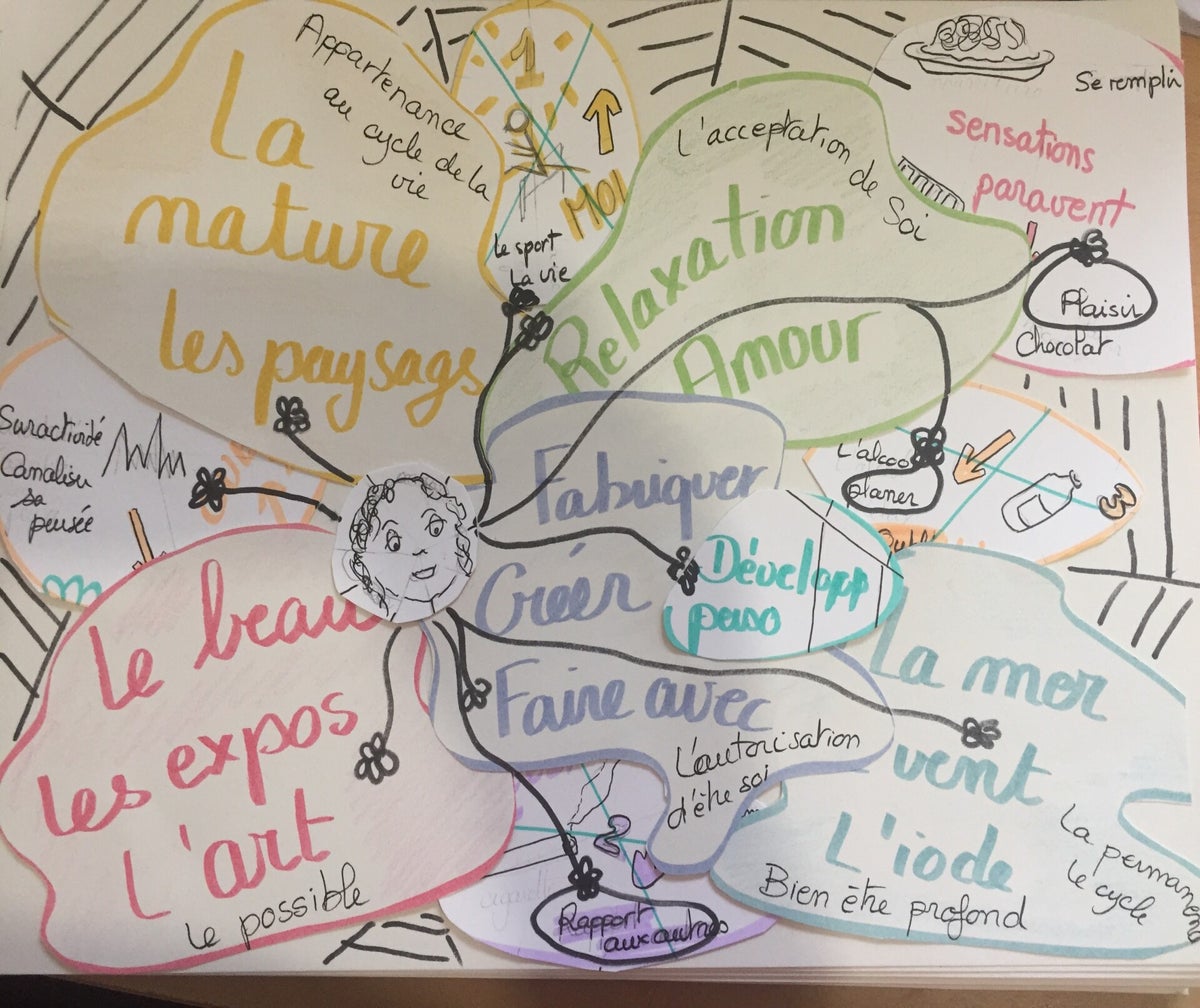 La
nature
les paysags
Appartenance
au cycle de la
vie
1
MOI
Le sport
La vie
L'acceptation
de Soi
Relaxation
Amour
Se remplir
sensations
paravent
Plaisir
Chocolat
Suractivité
Canaliser
sa
pensée
L'alcool
planer
3
Fabriquer
Créer
Faire avec
L'autorisation
d'être soi
Développ
perso
Le beau
les expos
L'art
Le possible
2
cigarette
Rapport
aux autres
La mer
vent
L'iode
Bien être profond
La permanence
le cycle